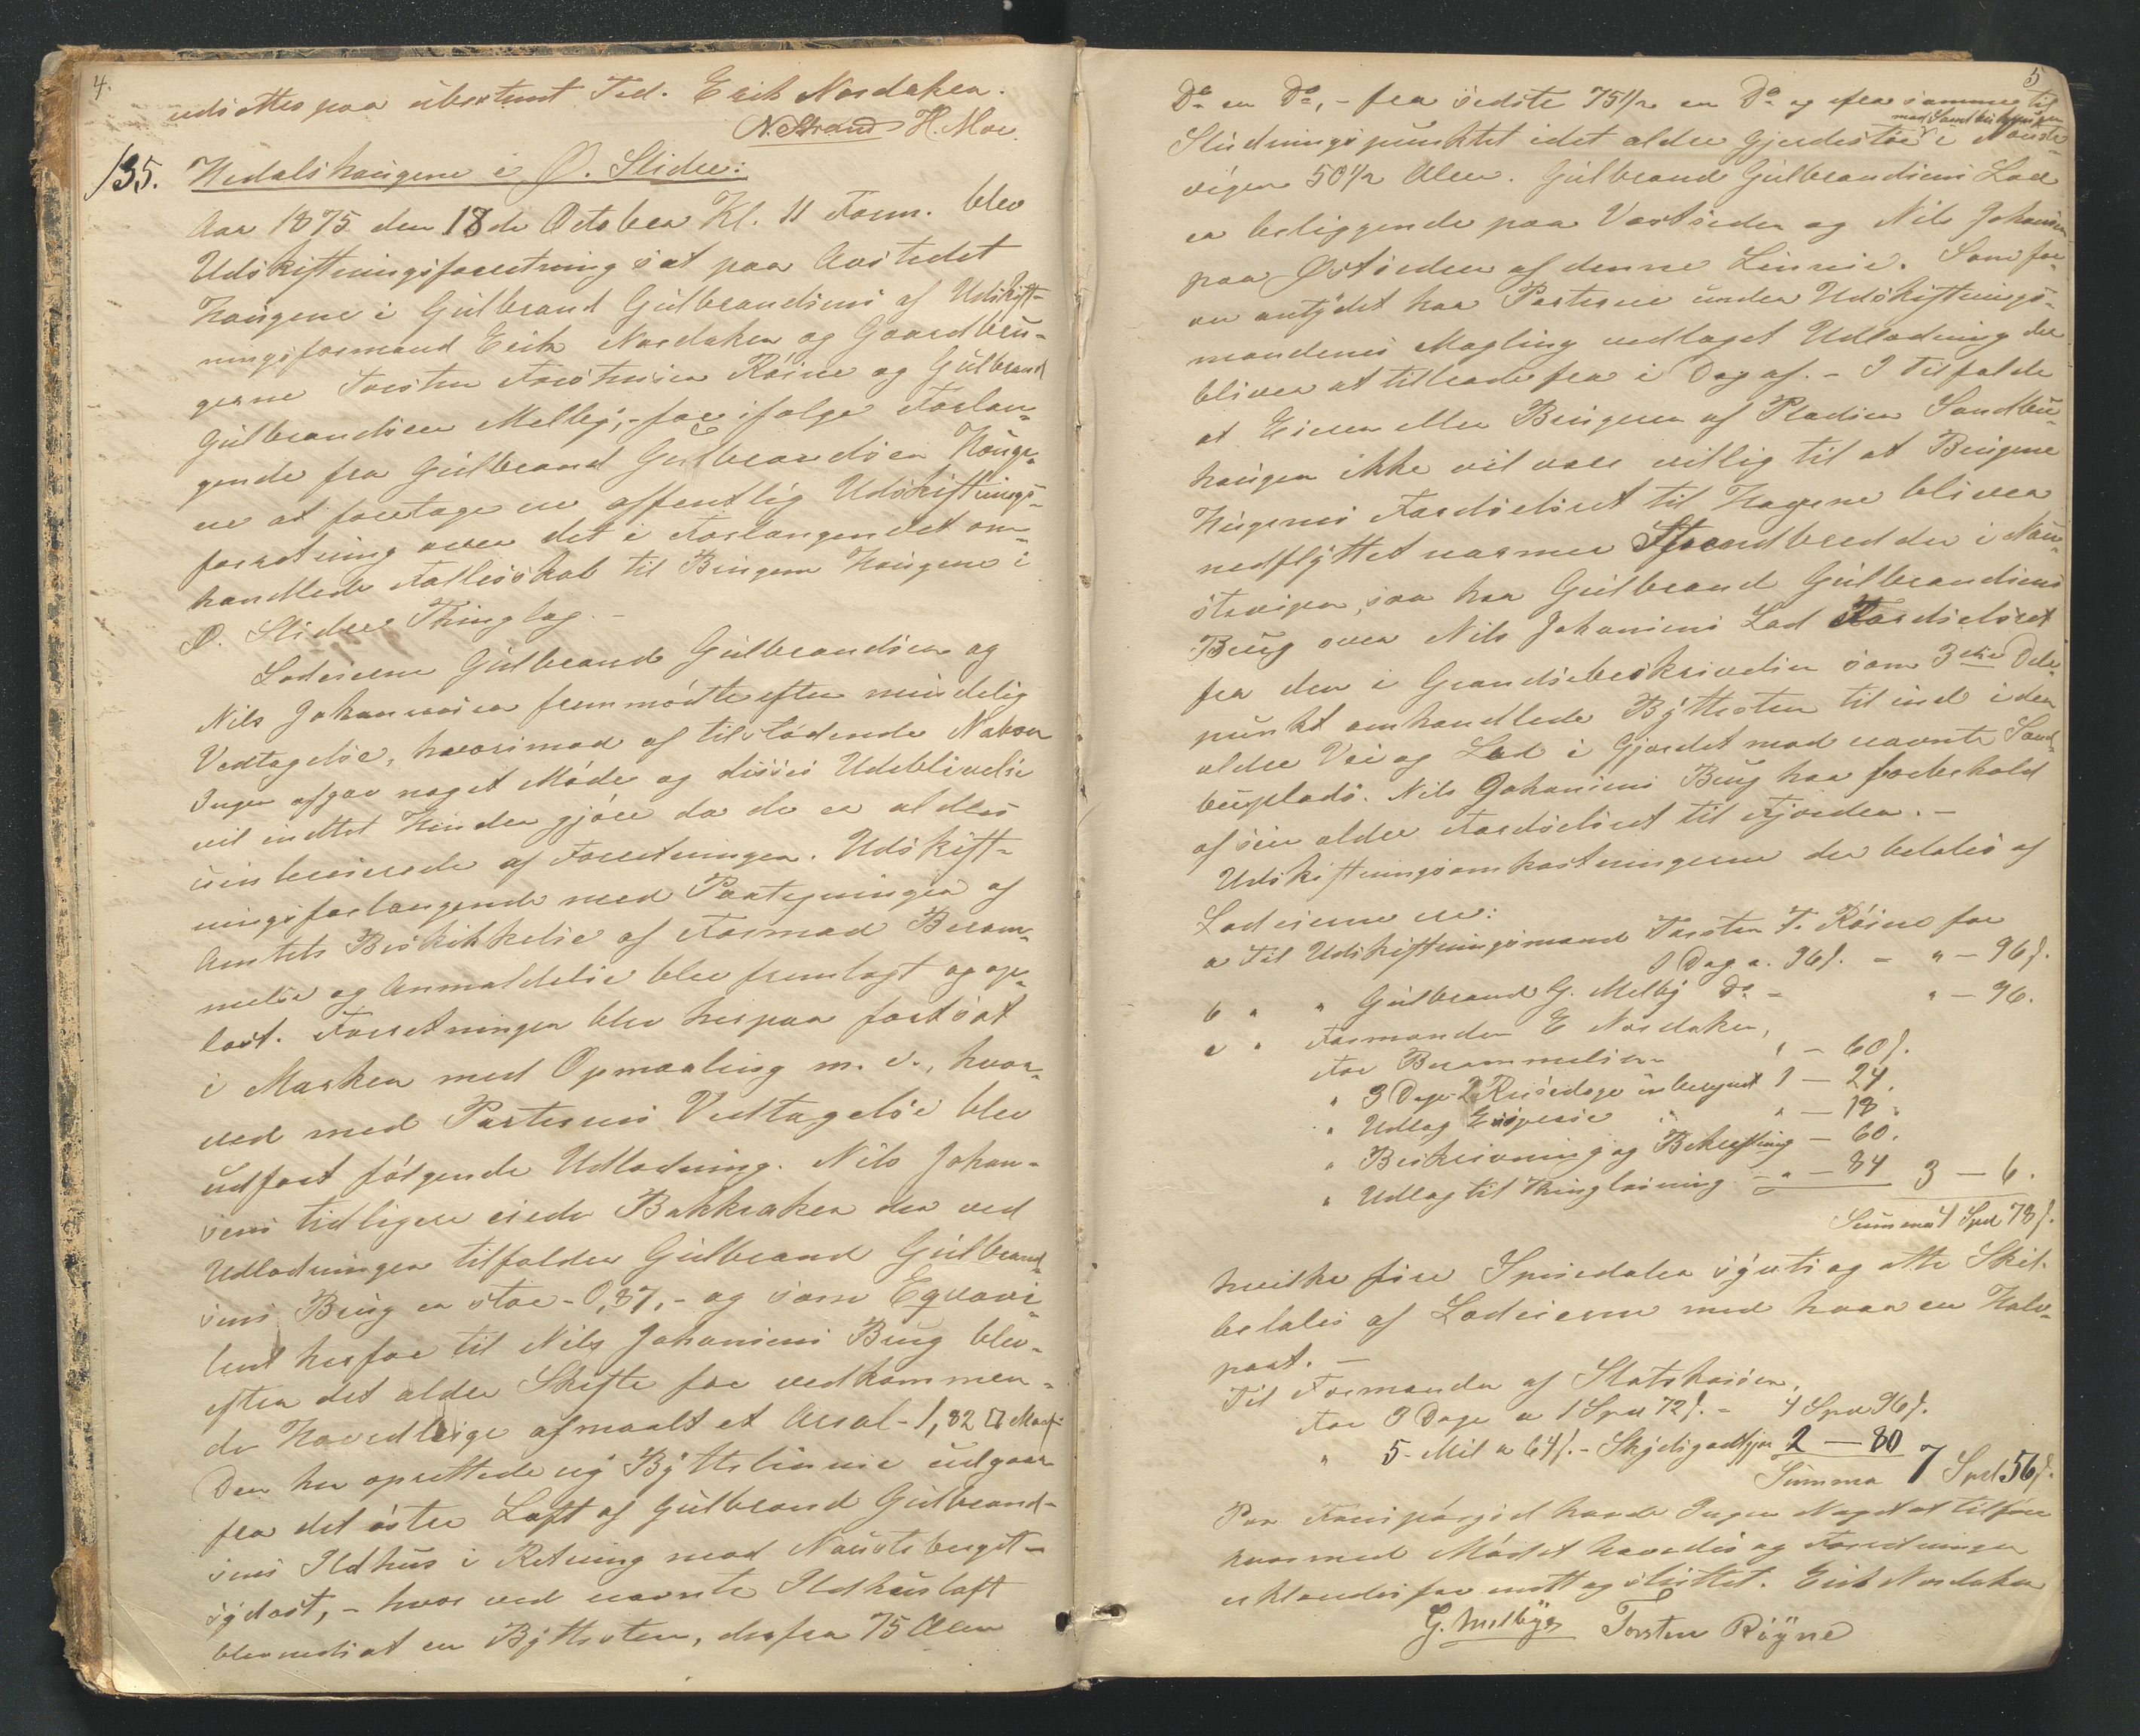 4.
udsættes paa ubestemt Tid. Erik Nordaker.
N. Strand H. Moe.
135. Hedalshaugene i Ø. Slidre:
Aar 1875 den 18de October Kl. 11 Form. blev
Udskiftningsforretning sat paa Aastedet
Haugene i Gulbrand Gulbrandsens af Udskift-
ningsformand Erik Nordaker og Gaardbru-
gerne Torsten Torstensen Röine og Gulbrand
Gulbrandsen Melby, - for ifølge Forlan-
gende fra Gulbrand Gulbrandsen Hauge-
ne at foretage en offentlig Udskiftnings-
forretning over det i Forlangendet om-
handlede Fællesskab til Brugene Haugene i
Ø. Slidre Thinglag. -
Lodeierne Gulbrand Gulbrandsen og
Nils Johannesen fremmödte efter mindelig
Vedtagelse, hvorimod af tilstödende Naboer
Ingen afgav noget Möde og disses Udeblivelse
vil intet Hinder gjöre da de er aldeles
uinteresserede af Forretningen. Udskift-
ningsforlangende med Paategninger af
Amtets Beskikkelse af Formand Beram-
melse og Anmeldelse blev fremlagt og op-
læst. Forretningen blev herpaa fortsat
i Marken med Opmaaling m. v., hvor-
ved med Parternes Vedtagelse blev
udfört fölgende Udlodning. Nils Johan-
sens tidligere eiede Bakkeaker der ved
Udlodningen tilfalder Gulbrand Gulbrand-
sens Brug er stor - 0,87, - og som Eqvavi-
lent herfor til Nils Johansens Brug blev -
efter det ældre Skifte for vedkommen-
de Havedleige afmaalt et Areal - 1,82 □ Maal
Den her oprettede ny Byttelinnie udgaar
fra det östre Loft af Gulbrand Gulbrand-
sens Ildhus i Retning mod Naustberget -
sydost, - hvor ved nævnte Ildhusloft
blev nedsat en Byttesten, derfra 75 Alen
5
Do en Do, - fra sidste 75 1/2 en Do og fra samme til
mod Sandbuhaugen
Slutningspunktet i det ældre Gjerdestöe i Nouste-
vigen 50 1/2 Alen. Gulbrand Gulbrandsens Lod
er beliggende paa Vestsiden og Nils Johansens
paa Østsiden af denne Linnie. Som for-
an antydet har Parterne under Udskiftnings-
mændenes Mægling vedtaget Udlodning der
bliver at tiltræde fra i Dag af. - I Tilfælde
at Eieren eller Brugeren af Pladsen Sandbu-
haugen ikke vil være villig til at Brugene
Haugenes Færdselsret til Haugene bliver
nedflyttet nærmere Strandbredden i Nou-
stevigen, saa har Gulbrand Gulbrandsens
Brug over Nils Johansens Lod Færdselsret
fra den i Grændsebeskrivelsen som 3die Dele-
punkt omhandlede Byttesten til ind i den
ældre Vei og Led i Gjerdet mod nævnte Sand-
buplads. Nils Johansens Brug har forbehold
af sin ældre Færdselsret til Fjorden. -
Udskiftningsomkostningerne der betales af
Lodeierne er:
a Til Udskiftningsmand Torsten T. Röine for
1 Dag a. 96 ſ. - „ - 96 ſ.
b „ „ Gulbrand G. Melby Do - „ - 96.
c „ Formanden E Nordaker,
For Berammelsen „ - 60 ſ.
„ 3 Dage - 2 Reisedage iberegnet 1 - 24.
„ Udlag Expresse „ - 18.
„ Beskrivning og Bekræftning - 60.
„ Udlag til Thinglæsning - „ - 84 3 - 6.
Summa 4 Spd 78 ſ.
hvilke fire Speciedaler sytti og otte Skil.
betales af Lodeierne med hver en Halv-
part. -
Til Formanden af Statskassen,
For 3 Dage a 1 Spd 72 ſ. - 4 Spd 96 ſ.
„ 5 - Mil a 64 ſ. - Skydsgodtgjör 2 - 80
Summa 7 Spd 56 ſ.
Paa Forespörgsel havde Ingen Noget at tilföre
hvormed Mödet hævedes og Forretningen
erklæredes for endt og sluttet. Erik Nordaker
G. Melbye Torsten Röyne